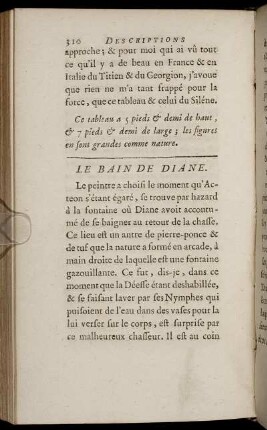 310 DESCRIPTIONS
approche; & pour moi qui ai vû tout
ce qu'il y a de beau en France & en
Italie du Titien & du Georgion, j'avoue
que rien ne m'a tant frappé pour la
force, que ce tableau & celui du Siléne.
Ce tableau a 5 pieds & demi de haut,
& 7 pieds & demi de large; les figures
en sont grandes comme nature.
LE BAIN DE DIANE.
Le peintre a choisi le moment qu'Ac-
teon s'étant égaré, se trouve par hazard
à la fontaine où Diane avoit accoutu-
mé de se baigner au retour de la chasse.
Ce lieu est un antre de pierre-ponce &
de tuf que la nature a formé en arcade, à
main droite de laquelle est une fontaine
gazouillante. Ce fut, dis-je, dans ce
moment que la Déesse étant deshabillée,
& se faisant laver par ses Nymphes qui
puisoient de l'eau dans des vases pour la
lui verser sur le corps, est surprise par
ce malheureux chasseur. Il est au coin